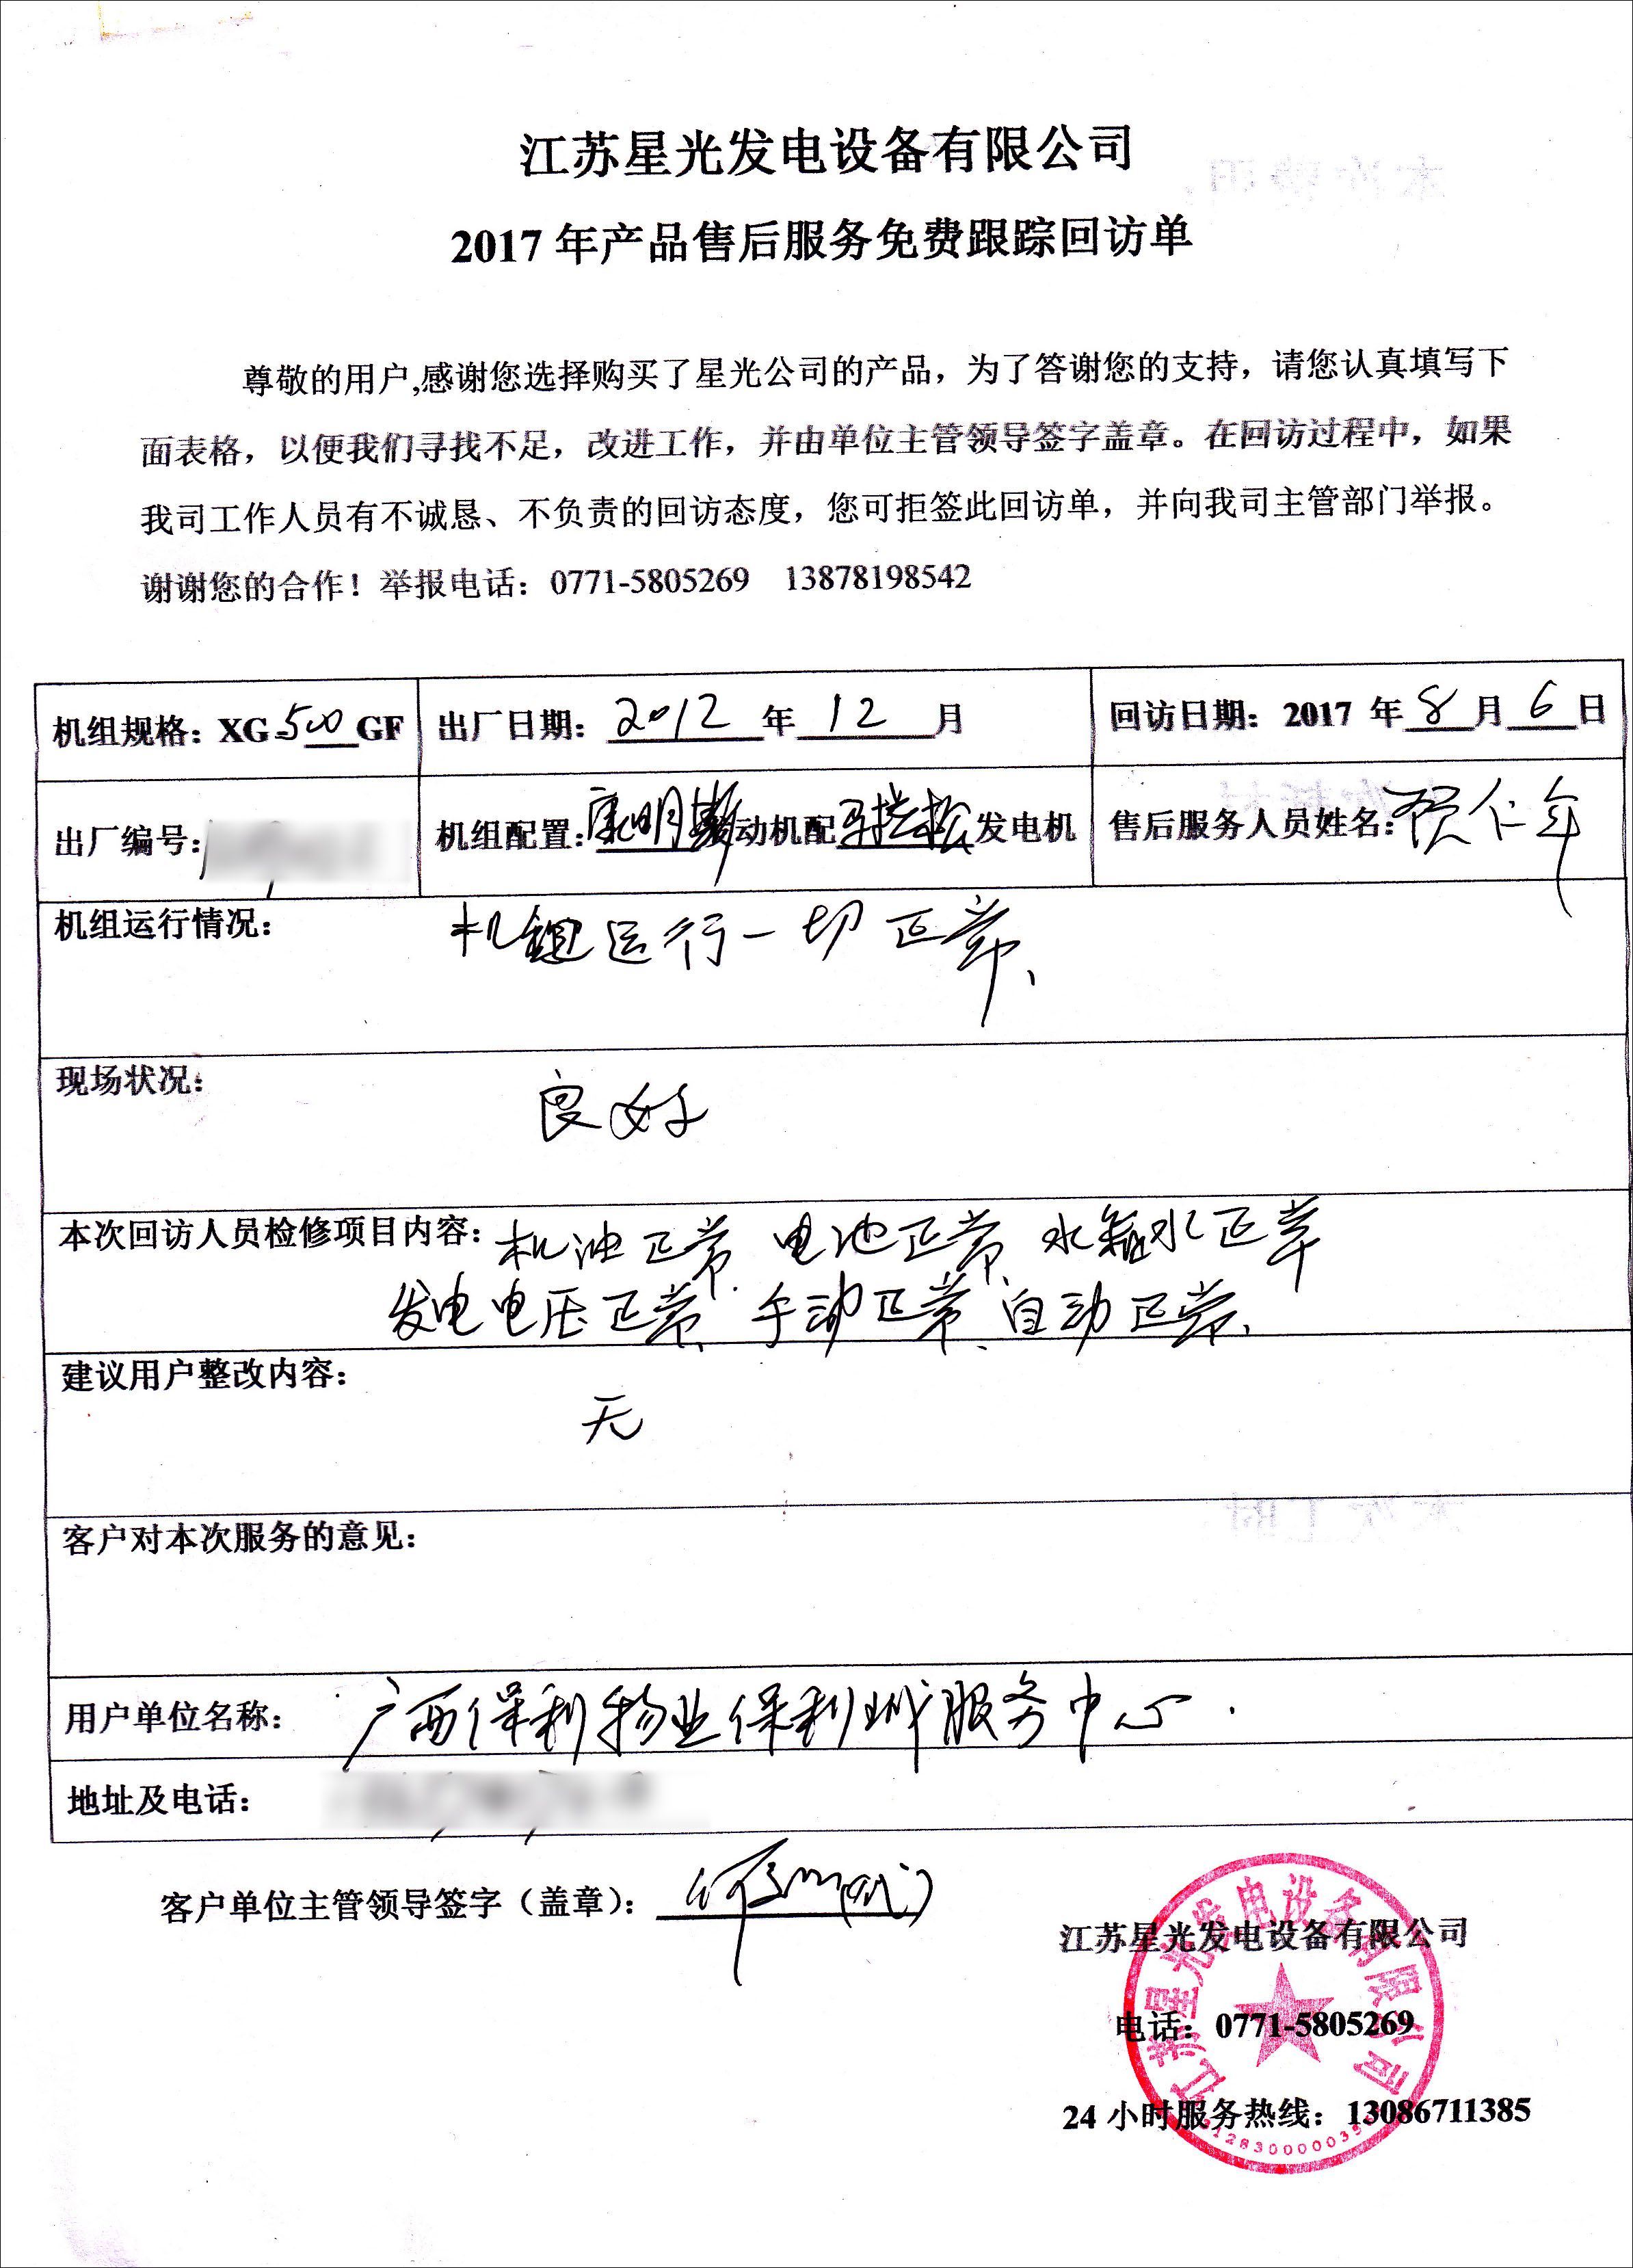 江苏星光发电设备有限公司
2017 年产品售后服务免费跟踪回访单
尊敬的用户,感谢您选择购买了星光公司的产品，为了答谢您的支持，请您认真填写下
面表格，以便我们寻找不足，改进工作，并由单位主管领导签字盖章。在回访过程中，如果
我司工作人员有不诚恳、不负责的回访态度，您可拒签此回访单，并向我司主管部门举报。
谢谢您的合作！举报电话：0771-5805269 13878198542
机组规格：XG-500GF 出厂日期：2012 年 12 月 回访日期：2017 年 8 月 6 日
出厂编号: 机组配置:康明斯发动机配马拉松发电机 售后服务人员姓名:贺仁年
机组运行情况： 机组运行一切正常、
现场状况： 良好
本次回访人员检修项目内容：机油正常、电池正常、水箱水正常
发电电压正常、手动正常、自动正常、
建议用户整改内容：
无
客户对本次服务的意见：
用户单位名称： 广西保利物业保利城服务中心.
地址及电话：
客户单位主管领导签字（盖章）：
江苏星光发电设备有限公司
电话：0771-5805269
24 小时服务热线：13086711385
江苏星光发电设备有限公司